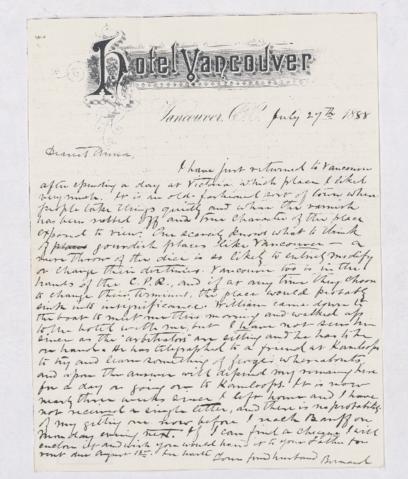 Hotel Vancouver
Vancouver, B.C. July 27th 1888
Dearest Annie,
I have just returned to Vancouver
after spending a day at Victoria which place I liked
very much. It is an old-fashioned sort of town where
people take things quietly and where the varnish
has been rubbed off and true character of the place
exposed to view. One scarcely knows what to think
of mourdish places like Vancouver – a
mere throw of the dice is as likely to entirely modify
or change their destinies. Vancouver too is in the
hands of the C.P.R. and if at any time they choose
to change their terminus, the place would probably
sink into insignificance. William came down to
the boat to meet me this morning and walked up
to the hotel with me, but I have not seen him
since as the 'arbitrators' are sitting and he has to be
on hand. He has telegraphed a friend at Kamloops
to try and learn something of George's whereabouts,
and upon the answer will depend my remaining here
for a day or going on to Kamloops. It is now
nearly three weeks since I left home and I have
not received a single letter, and there is no probability
of my getting one now, before I reach Banff on
Monday evening next. If I can find a cheque I will
enclose it and wish you would hand it to your Father for
rent due August 1st. In haste Your fond husband Bernard